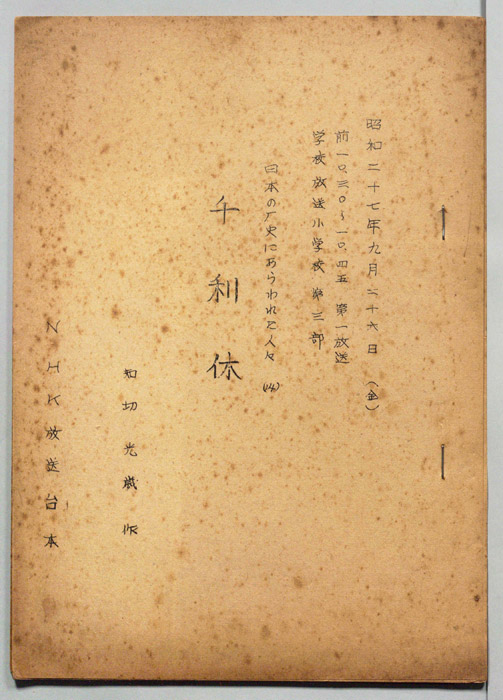 昭和二十七年九月二十六日（金）
前一〇.三〇～一〇.四五 第一放送
学校放送小学校 第三部
日本の厂史にあらわれた人々 (14)
千利休
知切光歳 作
NHK放送台本